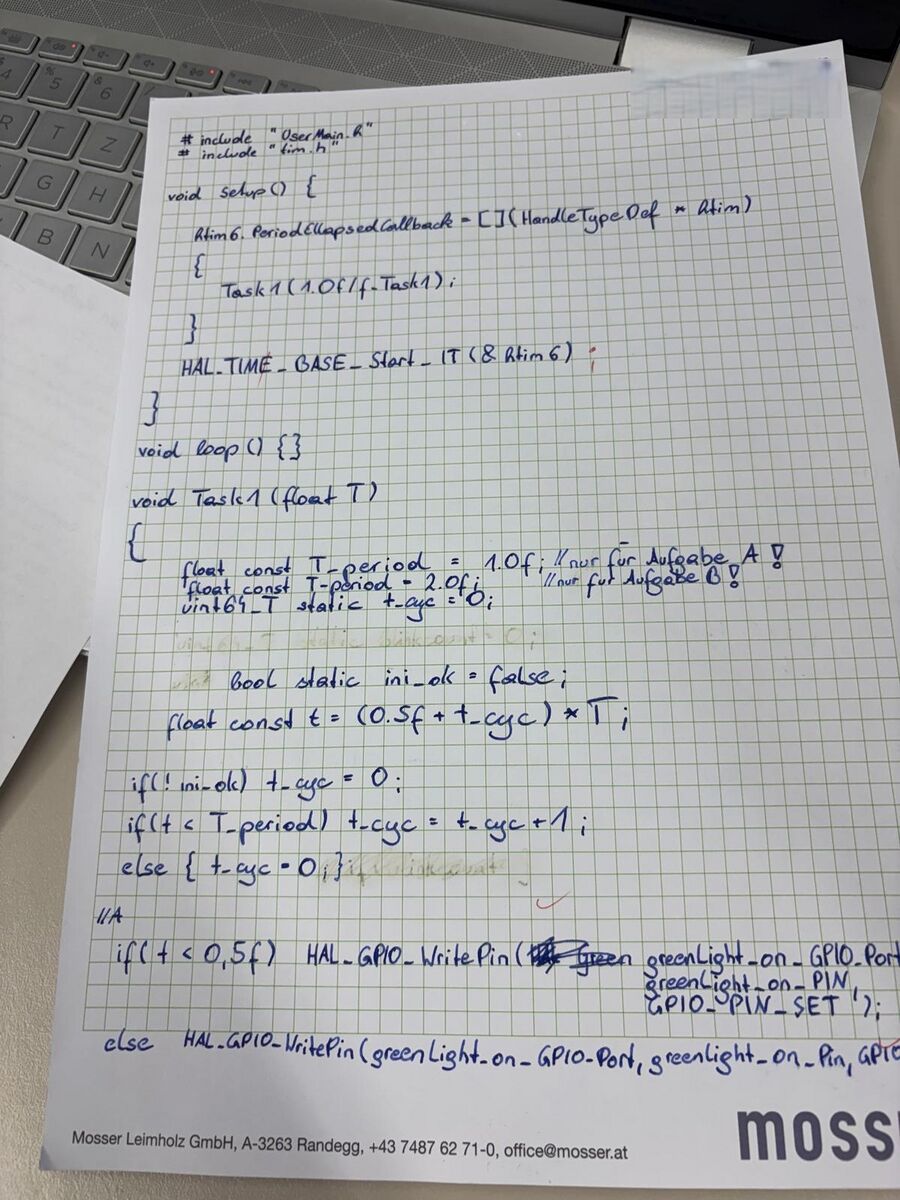 # include "UserMain.h"
# include "tim.h"
void setup() {
htim6.PeriodEllapsedCallback = [](HandleTypeDef * htim)
{
Task1(1.0f/f_Task1);
}
HAL_TIME_BASE_Start_IT(&htim6);
}
void loop() {}
void Task1(float T)
{
float const T_period = 1.0f; //nur für Aufgabe A!
float const T_period = 2.0f; //nur für Aufgabe B!
uint64_T static t_cyc = 0;
Bool static ini_ok = false;
float const t = (0.5f + t_cyc) * T;
if(! ini_ok) t_cyc = 0;
if(t < T_period) t_cyc = t_cyc + 1;
else { t_cyc = 0; }
//A
if(t < 0,5f) HAL_GPIO_WritePin( greenLight_on_GPIO_Port
greenLight_on_PIN,
GPIO_PIN_SET );
else HAL_GPIO_WritePin(greenLight_on_GPIO_Port, greenLight_on_Pin, GPIO
Mosser Leimholz GmbH, A-3263 Randegg, +43 7487 62 71-0, office@mosser.at
moss
4 % 5 & 6
R T Z
G H
B N